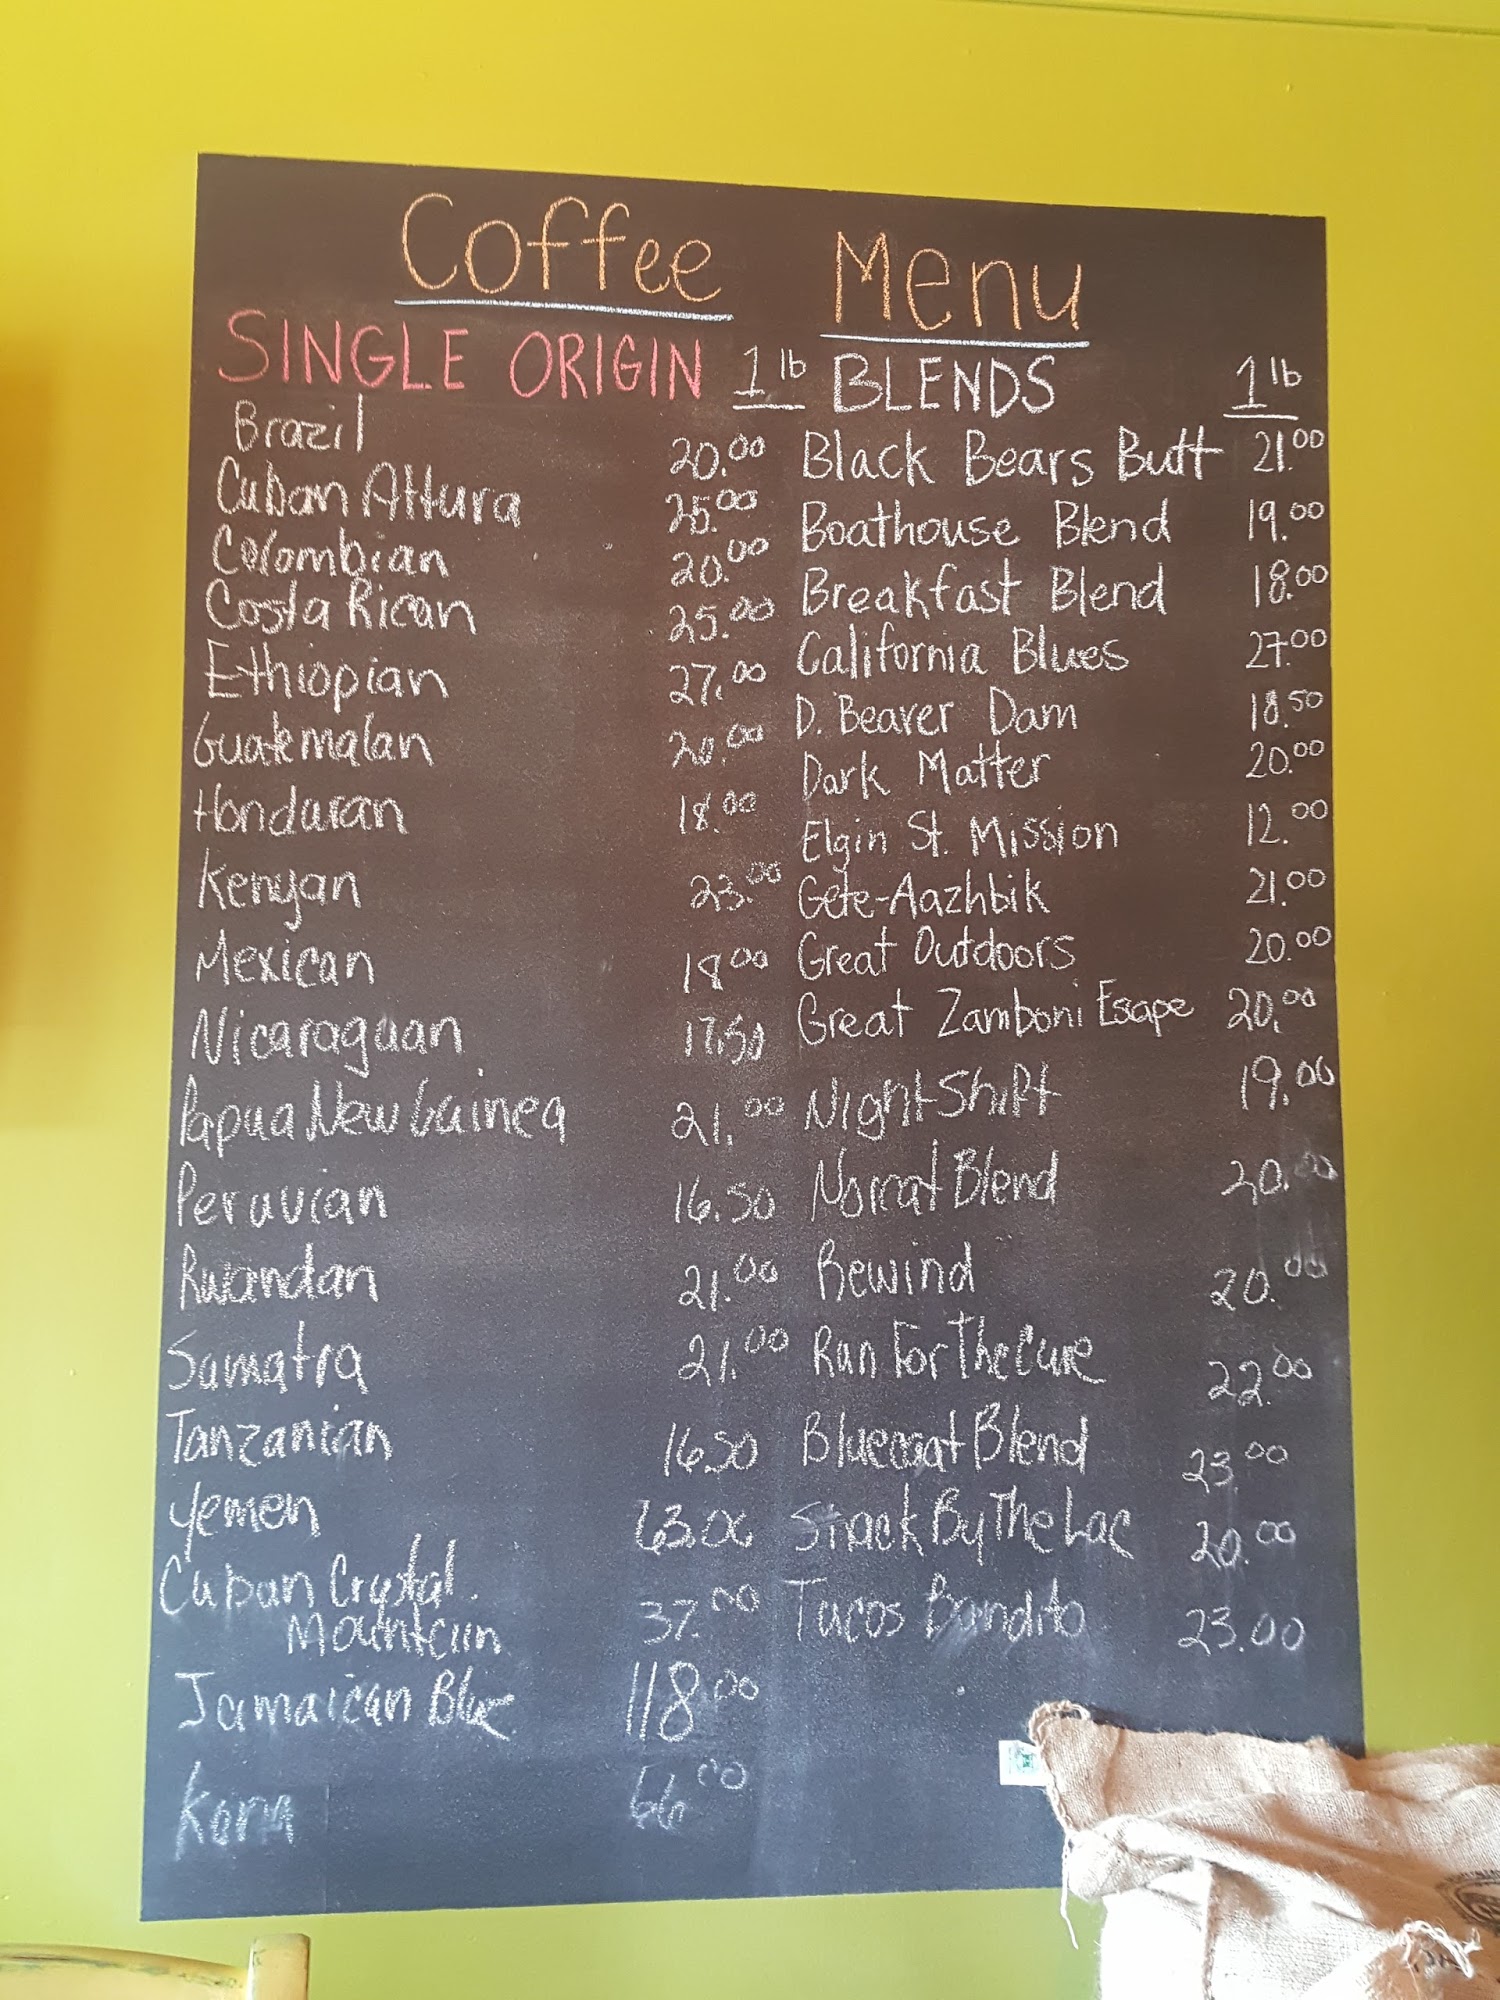 Coffee Menu
SINGLE ORIGIN 1 lb
Brazil 20.00
Cuban Altura 25.00
Colombian 20.00
Costa Rican 25.00
Ethiopian 27.00
Guatemalan 20.00
Honduran 18.00
Kenyan 23.00
Mexican 18.00
Nicaraguan 17.50
Papua New Guinea 21.00
Peruvian 16.50
Rwandan 21.00
Sumatra 21.00
Tanzanian 16.50
Yemen 63.00
Cuban Crystal
Mountain 37.00
Jamaican Blue 118.00
Kona 66.00
BLENDS 1 lb
Black Bears Butt 21.00
Boathouse Blend 19.00
Breakfast Blend 18.00
California Blues 27.00
D. Beaver Dam 18.50
Dark Matter 20.00
Elgin St. Mission 12.00
Gete-Aazhbik 21.00
Great Outdoors 20.00
Great Zamboni Esape 20.00
Night Shift 19.00
Norcat Blend 20.00
Rewind 20.00
Run For The Cure 22.00
Bluecoat Blend 23.00
Snack By The Lac 20.00
Tacos Bandito 23.00